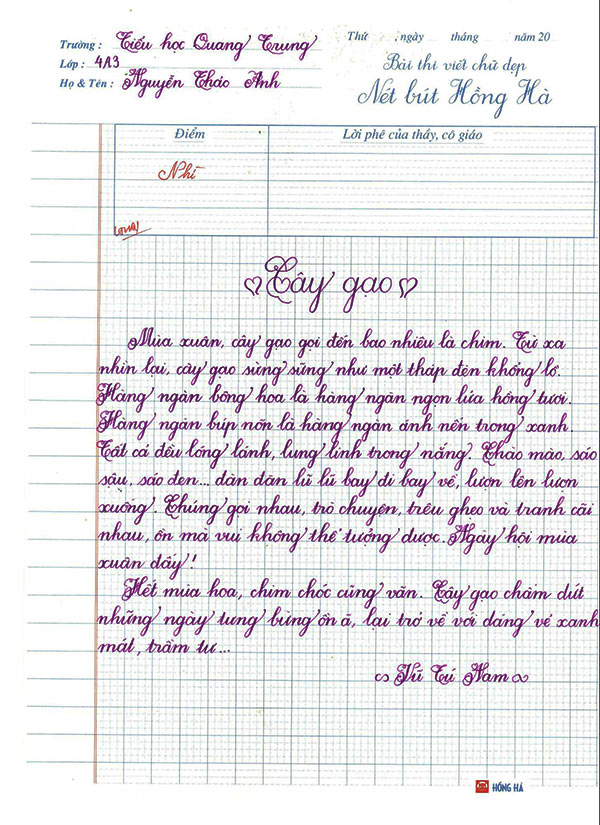 Trường : Tiểu học Quang Trung
Thứ ngày tháng năm 20
Lớp : 4A3
Họ & Tên : Nguyễn Thảo Anh
Bài thi viết chữ đẹp
Nét bút Hồng Hà
Điểm
Lời phê của thầy, cô giáo
Nhì
Cây gạo
Mùa xuân, cây gạo gọi đến bao nhiêu là chim. Từ xa
nhìn lại, cây gạo sừng sững như một tháp đèn khổng lồ.
Hàng ngàn bông hoa là hàng ngàn ngọn lửa hồng tươi.
Hàng ngàn búp nõn là hàng ngàn ánh nến trong xanh.
Tất cả đều lóng lánh, lung linh trong nắng. Chào mào, sáo
sậu, sáo đen... đàn đàn lũ lũ bay đi bay về, lượn lên lượn
xuống. Chúng gọi nhau, trò chuyện, trêu ghẹo và tranh cãi
nhau, ồn mà vui không thể tưởng được. Ngày hội mùa
xuân đấy!
Hết mùa hoa, chim chóc cũng vãn. Cây gạo chấm dứt
những ngày tưng bừng ồn ã, lại trở về với dáng vẻ xanh
mát, trầm tư...
Vũ Tú Nam
HỒNG HÀ